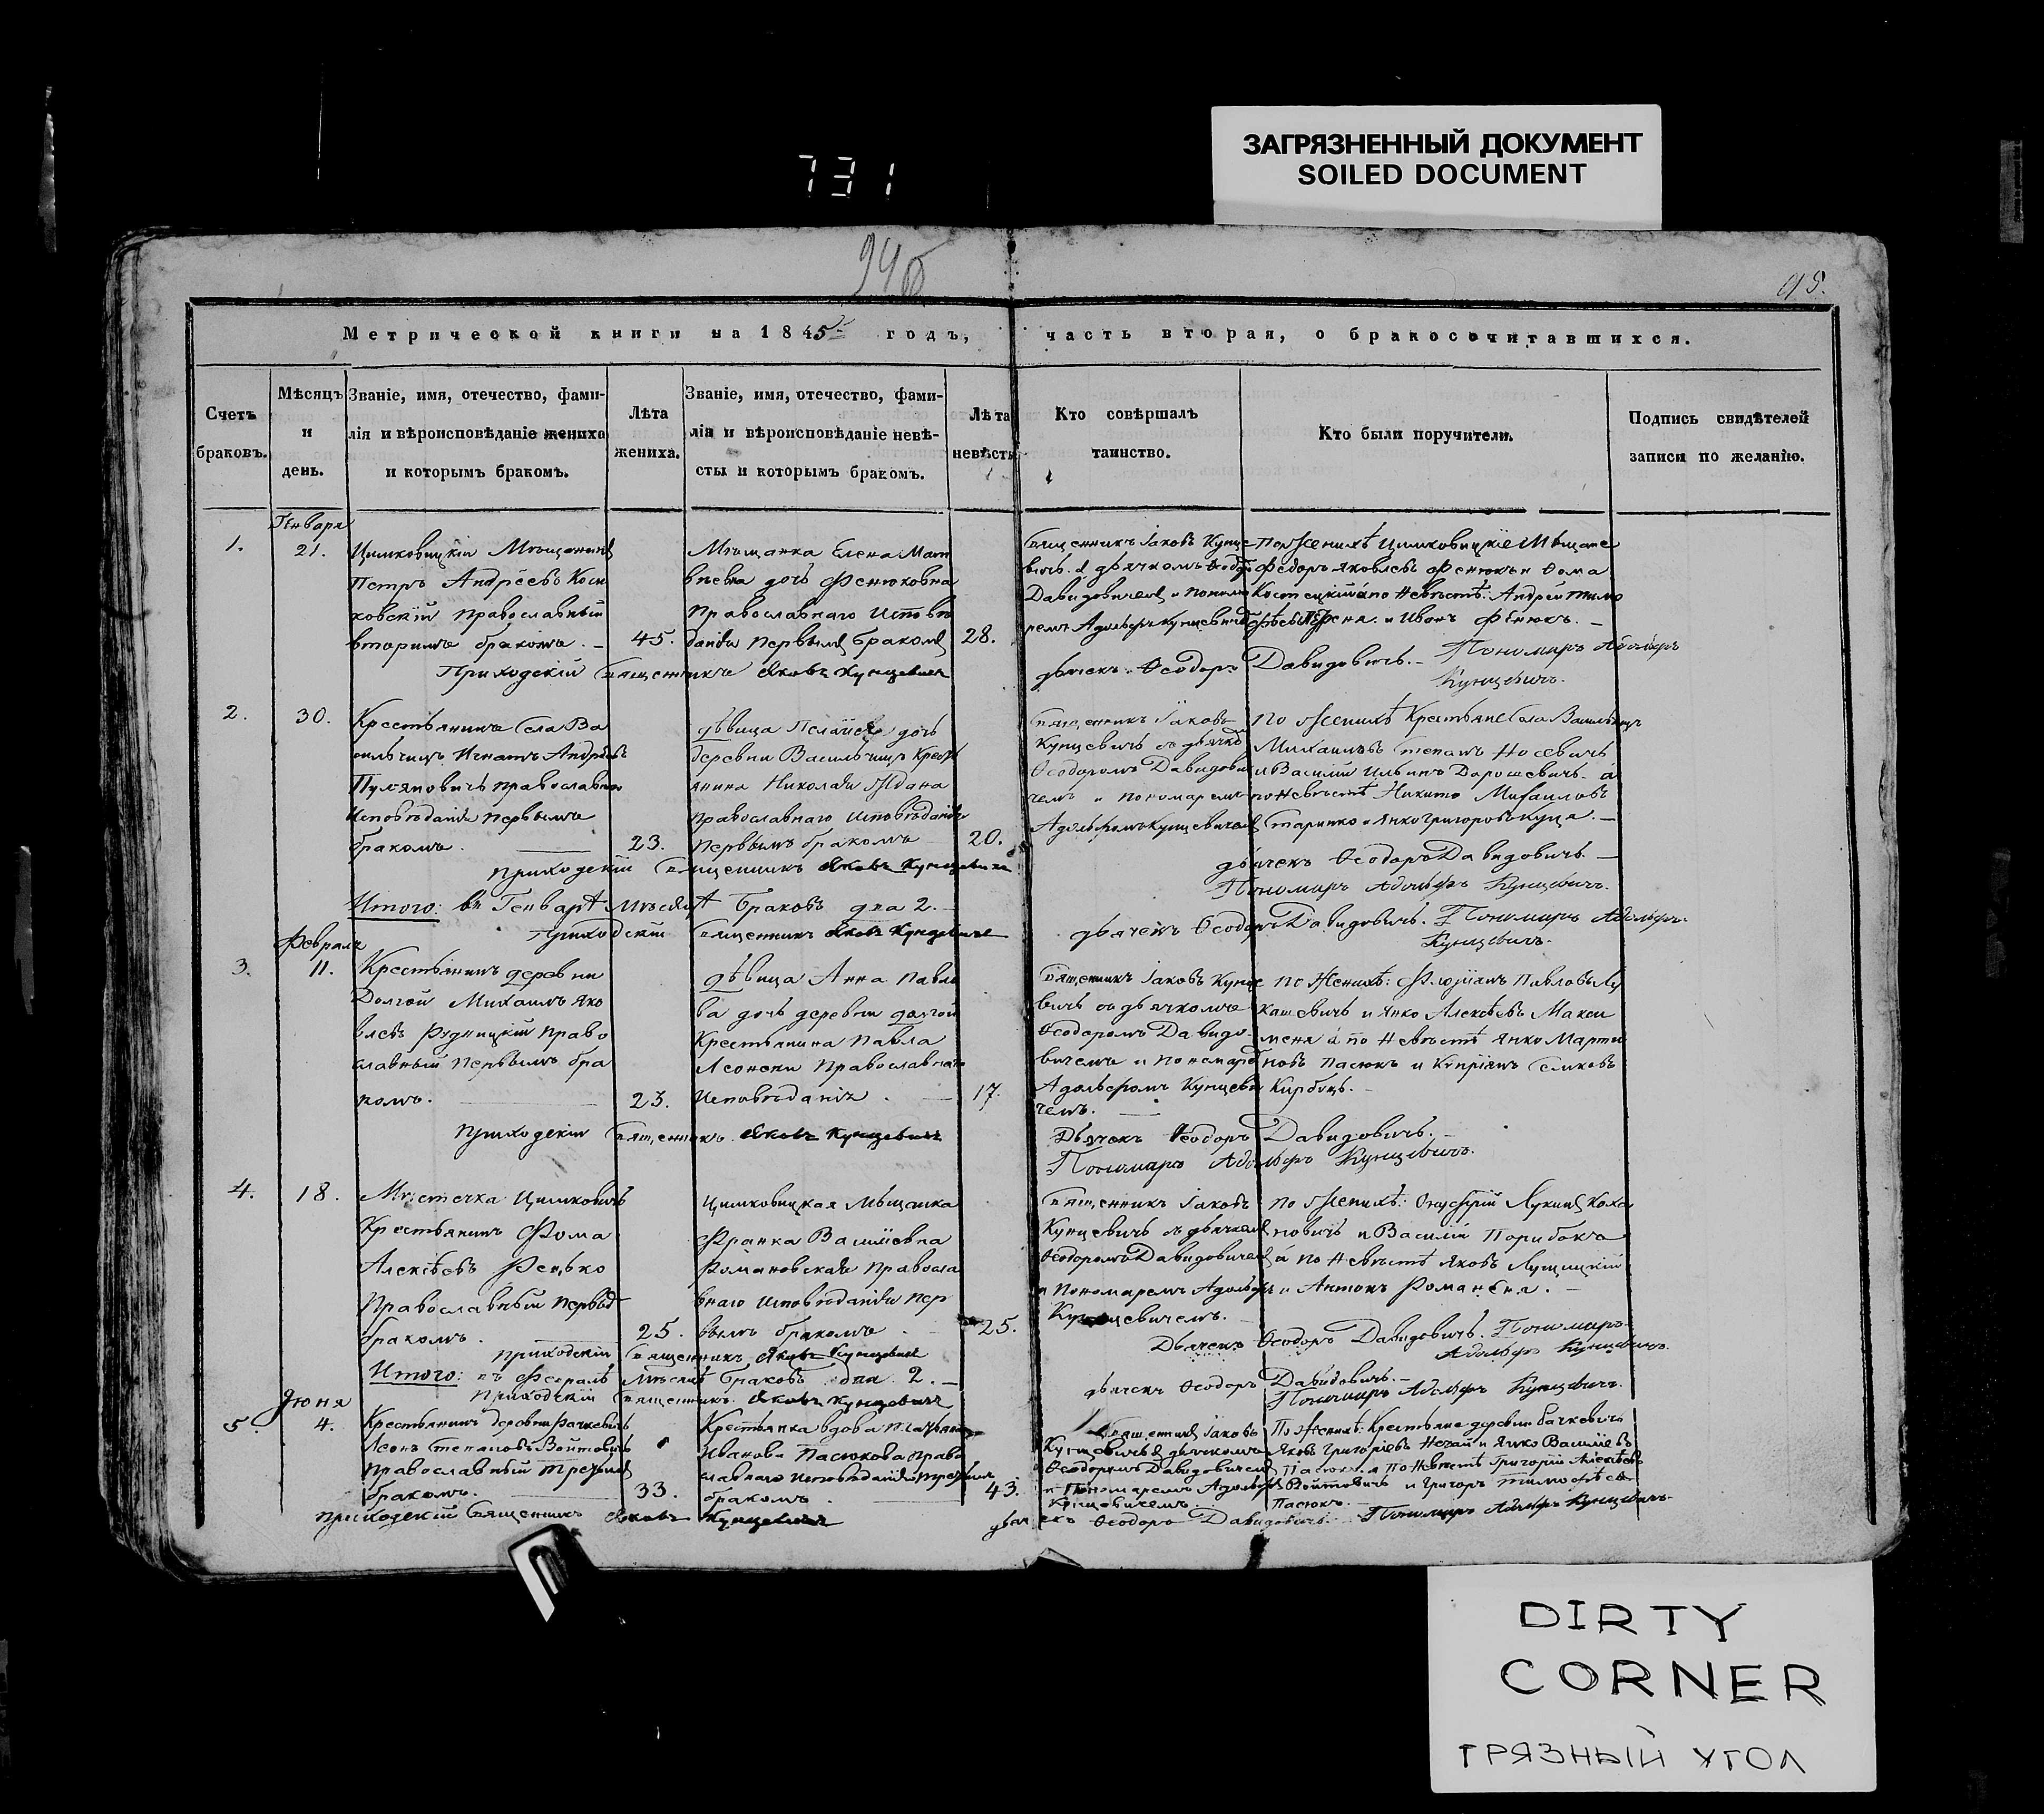 ЗАГРЯЗНЕННЫЙ ДОКУМЕНТ
SOILED DOCUMENT
731
94б
95.
Метрической книги на 1845 годъ, часть вторая, о бракосочитавшихся.
Счетъ браковъ.
Мѣсяцъ и день.
Званіе, имя, отечество, фамилія и вѣроисповѣданіе жениха и которымъ бракомъ.
Лѣта жениха.
Званіе, имя, отечество, фамилія и вѣроисповѣданіе невѣсты и которымъ бракомъ.
Лѣта невѣсты
Кто совѣршалъ таинство.
Кто были поручители.
Подпись свидѣтелей записи по желанію.
Генваря
1.
21.
Цимковицкій Мѣщанинъ
Петръ Андреевъ
православный
вторымъ бракомъ.
45.
Мѣщанка Елена Мат
вѣева дочь Фенюковна
Православнаго Исповѣ
данія первымъ бракомъ
28.
Священникъ Іаковъ Кунце
вичъ съ дьячкомъ Ѳеодо
Давидовичемъ и поном
ремъ Адольфомъ Кунцевич
По Женихѣ Цимковицкіе Мѣщане
Федоръ Яковлевъ Фенюкъ и Ѳома
а по Невѣстѣ: Андрей
и Иванъ Фенюкъ.
Приходскій Священникъ Яковъ Кунцевичъ
дьячекъ Ѳеодоръ Давидовичъ.
Пономаръ Адольфъ
Кунцевичъ.
2.
30.
Крестьянинъ Села Ва
сильчицъ Игнатъ Андреевъ
православнаго
Исповѣданія первымъ
бракомъ.
23.
дѣвица дочь
деревни Васильчицъ Крест
янина Николая Ждана
православнаго Исповѣданія
первымъ бракомъ
20.
Священникъ Іаковъ
Кунцевичъ съ дьячко
Ѳеодоромъ Давидови
чемъ и пономаремъ
Адольфомъ Кунцевичемъ
По Женихѣ Крестьяне Села Васильчицъ
Михаиловъ Степанъ Носевичъ
и Василій Ильинъ Дорошевичъ а
по Невѣстѣ Никита Михаиловъ
Старинко и Янко Григоровъ Куца.
приходскій Священникъ Яковъ Кунцевичъ
дьячекъ Ѳеодоръ Давидовичъ.
Пономаръ Адольфъ Кунцевичъ.
Итого: въ Генварѣ Мѣсяцѣ Браковъ два 2.
приходскій Священникъ Яковъ Кунцевичъ
дьячекъ Ѳеодоръ Давидовичъ. Пономаръ Адольфъ
Кунцевичъ.
Февраля
3.
11.
Крестьянинъ деревни
Долгой Михаилъ Яко
влевъ Рудницкій право
славный первымъ бра
комъ.
23.
дѣвица Анна Павло
ва дочь деревни долгой
Крестьянина Павла
православнаго
Исповѣданія.
17.
Священникъ Іаковъ Кунце
вичъ съ дьячкомъ
Ѳеодоромъ Давидо
вичемъ и пономаре
Адольфомъ Кунцеви
чемъ.
По Женихѣ: Флоріянъ Павловъ Лу
кашевичъ и Янко Алексѣевъ Макси
меня а по Невѣстѣ Янко Марти
новъ Пасюкъ и Кипріянъ Семковъ
Приходскій Священникъ Яковъ Кунцевичъ
Дьячекъ Ѳеодоръ Давидовичъ.
Пономаръ Адольфъ Кунцевичъ.
4.
18.
Мѣстечка Цимковичъ
Крестьянинъ Фома
Алексѣевъ Ренько
Православный первы
бракомъ.
25.
Цимковицкая Мѣщанка
Франка Василіевна
Романовская Правосла
внаго Исповѣданія пер
вымъ бракомъ
25.
Священникъ Іаковъ
Кунцевичъ съ дьячкомъ
Ѳеодоромъ Давидовичемъ
и Пономаремъ Адольфо
Кунцевичемъ.
По Женихѣ: Онуфрій Лукинъ Коха
новичъ и Василій Парибокъ
а по Невѣстѣ Яковъ Лущицкій
и Антонъ Романеня.
приходскій Священникъ Яковъ Кунцевичъ
Дьячекъ Ѳеодоръ Давидовичъ. Пономаръ
Адольфъ Кунцевичъ.
Итого: въ Февралѣ Мѣсяцѣ Браковъ два 2.
Приходскій Священникъ Яковъ Кунцевичъ
дьячекъ Ѳеодоръ Давидовичъ.
Пономаръ Адольфъ Кунцевичъ.
Июня
5.
4.
Крестьянинъ деревни Рачкевичъ
Леонъ Степановъ Войтовичъ
православный третьимъ
бракомъ.
33.
Крестьянка вдова
Иванова Пасюкова право
славнаго исповѣданія третьимъ
бракомъ.
43.
Священникъ Іаковъ
Кунцевичъ съ дьячкомъ
Ѳеодоромъ Давидовичемъ
и Пономаремъ Адольфо
Кунцевичемъ
По Женихѣ: Крестьяне деревни Рачкевичъ
Яковъ Григоріевъ Нехай и Янко Васіліевъ
Пасюкъ, а по Невѣстѣ Григорій Алексѣевъ
Войтовичъ и Григоръ Тимофѣевъ
Пасюкъ.
приходскій Священникъ Яковъ Кунцевичъ
дьячекъ Ѳеодоръ Давидовичъ. Пономаръ Адольфъ Кунцевичъ
DIRTY
CORNER
ГРЯЗНЫЙ УГОЛ